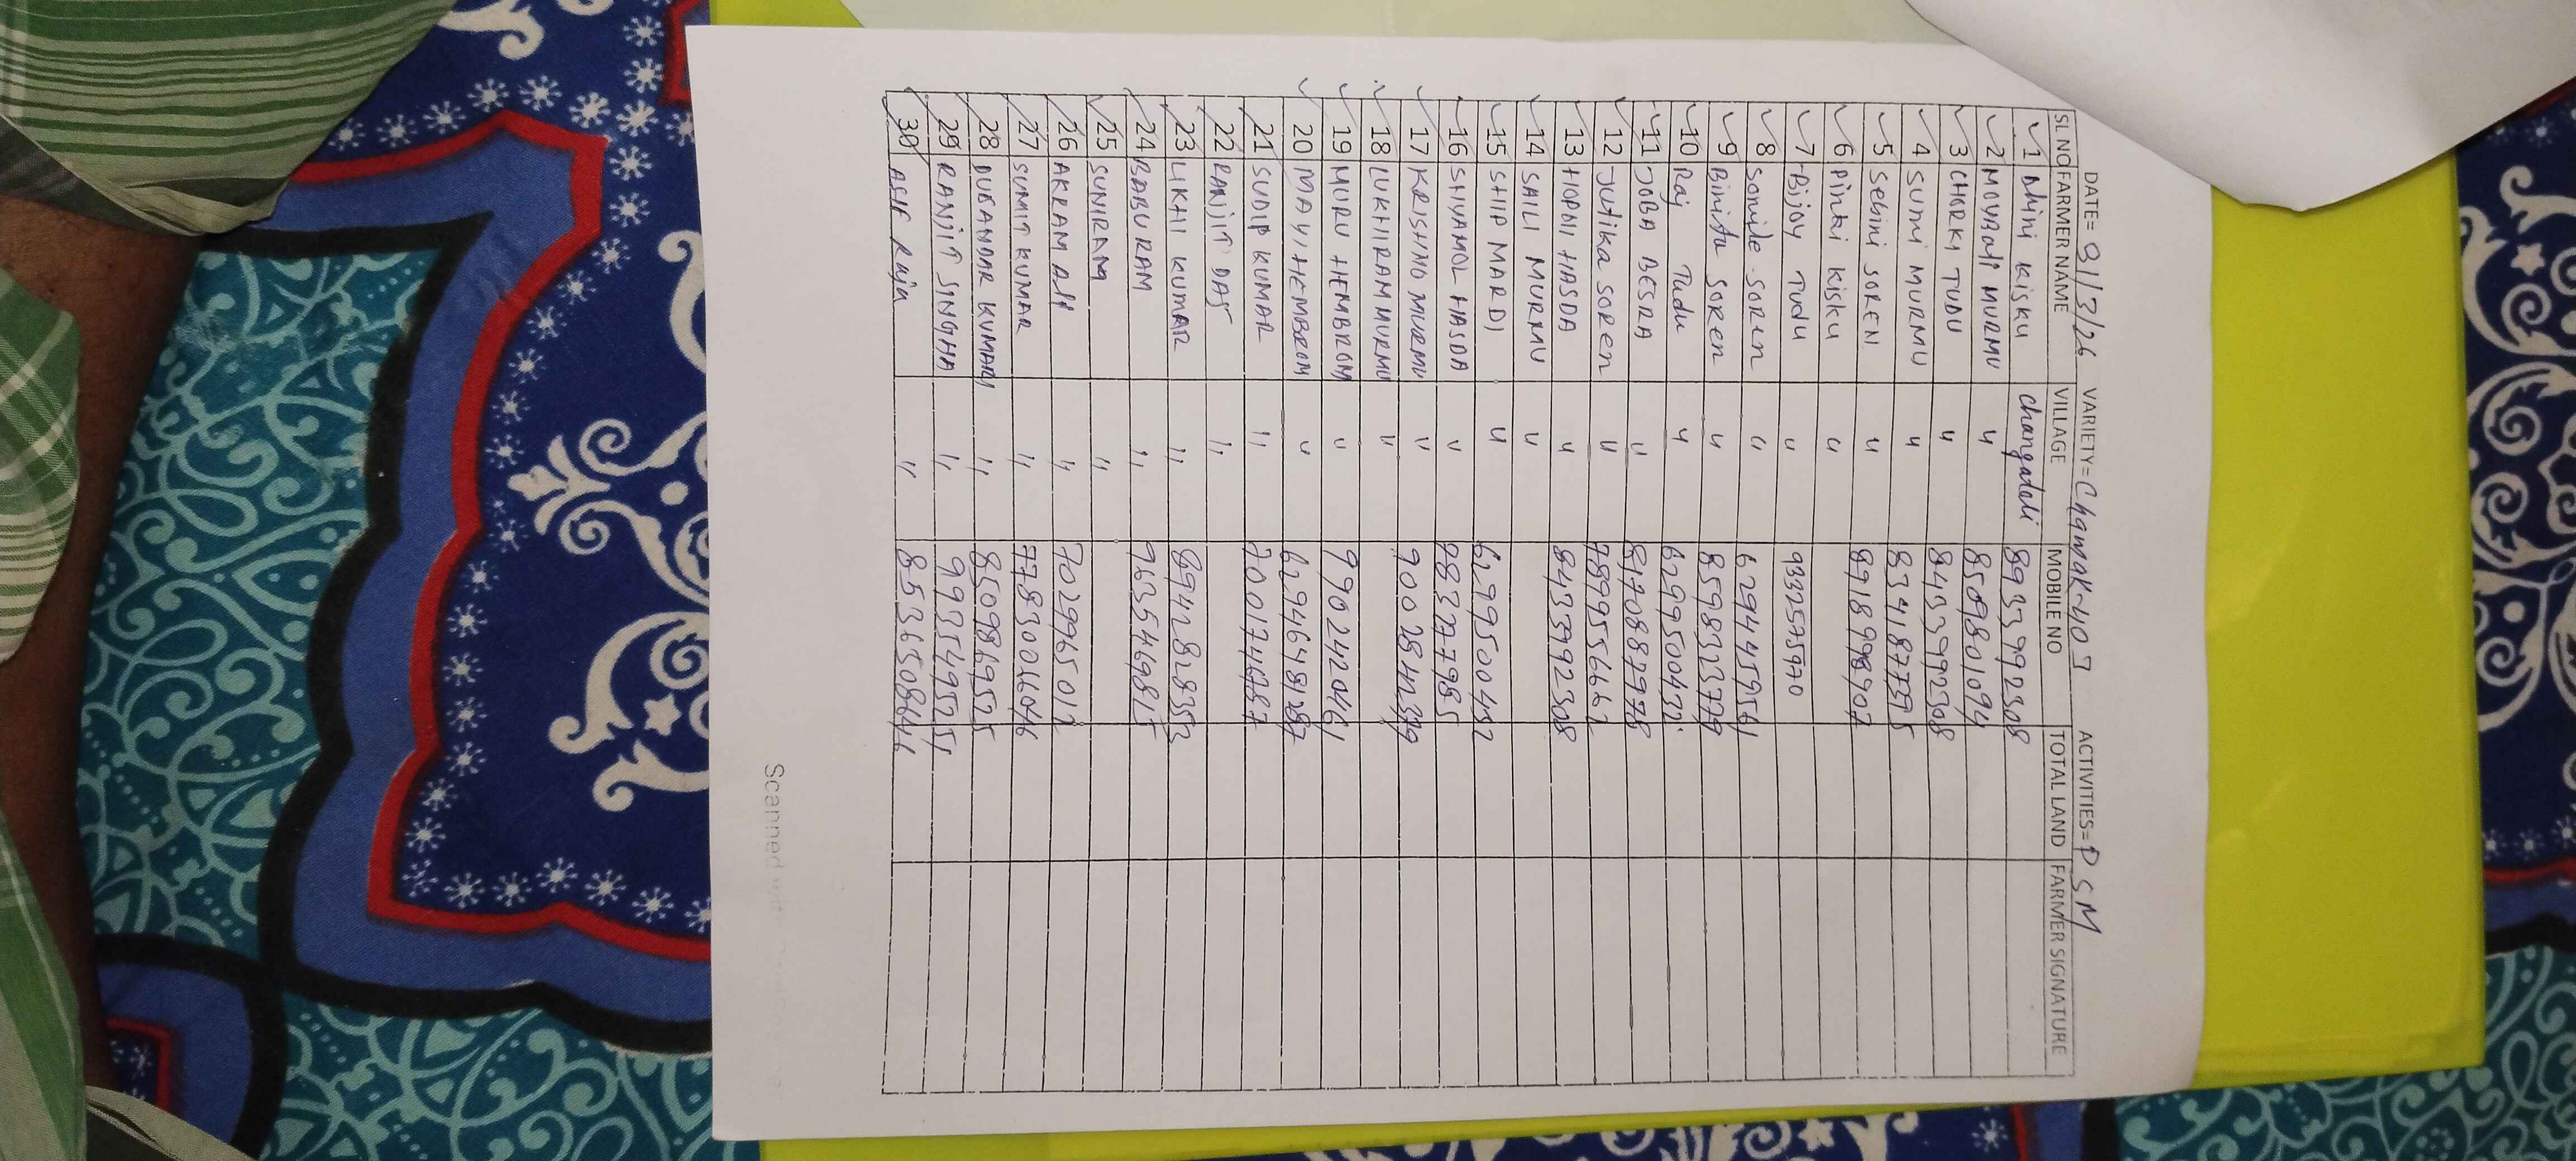 DATE= 31/3/26 VARIETY= Chamak-409 ACTIVITIES= PSM
SL NO FARMER NAME VILLAGE MOBILE NO TOTAL LAND FARMER SIGNATURE
1 Mini kisku changadali 8933992308
2 MOYBdi MURMU " 8509801094
3 CHORKI TUDU " 8433992308
4 SUMI MURMU " 8341877395
5 Sebini SOREN " 8918998907
6 Pinki kisku "
7 Bijoy Tudu " 9332575970
8 Somile Soren " 6294459561
9 Binita Soren " 8598323779
10 Raj Tudu " 6299500432
11 JOBA BESRA " 8170887978
12 Jutika Soren " 7899556662
13 HOPNI HASDA " 8433992308
14 SAILI MURMU "
15 SHIP MARDI " 6299500432
16 SHYAMOL HASDA "
17 KRISHNO MURMU " 9002842379
18 LUKHIRAM MURMU "
19 MURU HEMBROM " 9902420461
20 MAYI HEMBROM "
21 SUDIP KUMAR "
22 RANJIT DAS "
23 LIKHI KUMAR "
24 BABURAM " 9635469815
25 SUNIRAM "
26 AKRAM Ali " 7029965012
27 SUMIT KUMAR "
28 KUMARI " 8509869525
29 RANJIT SINGHA "
30 ASIF Raja "
Scanned with